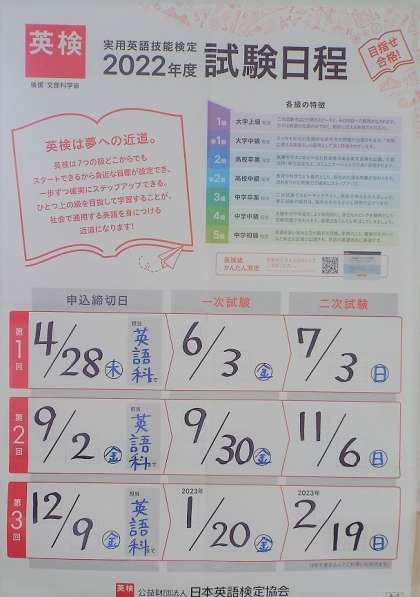 英検
後援 文部科学省
実用英語技能検定
2022年度 試験日程
目指せ
合格!
英検は夢への近道。
英検は7つの級どこからでも
スタートできるから身近な目標が設定でき、
一歩ずつ確実にステップアップできる。
ひとつ上の級を目指して学習することが、
社会で通用する英語を身につける
近道になります!
各級の特徴
1級 大学上級程度
準1級 大学中級程度
2級 高校卒業程度
準2級 高校中級程度
3級 中学卒業程度
4級 中学中級程度
5級 中学初級程度
英検級
かんたん測定
申込締切日 一次試験 二次試験
第1回 4/28 木 担当 英語科まで 6/3 金 7/3 日
第2回 9/2 金 担当 英語科まで 9/30 金 11/6 日
第3回 12/9 金 担当 英語科まで 2023年 1/20 金 2023年 2/19 日
英検 公益財団法人 日本英語検定協会